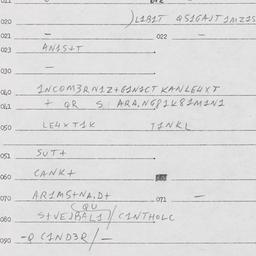 020 )L1B1T QS1GAJT 1MZ1S
021 — 022 —
023 AN1S+T
030 —
040 1NCOM3RN1Z+G1N1CT KANLE4XT
041 + QR S: ARA,NG81K81M1N1
050 LE4XT1K T1NKL
051 SUT+
060 CANK+
070 AR1MS+NA,D+ 071 —
(QU
080 S+VEJBAL1)/C1NTHOLC
090 -Q C1ND3R/—